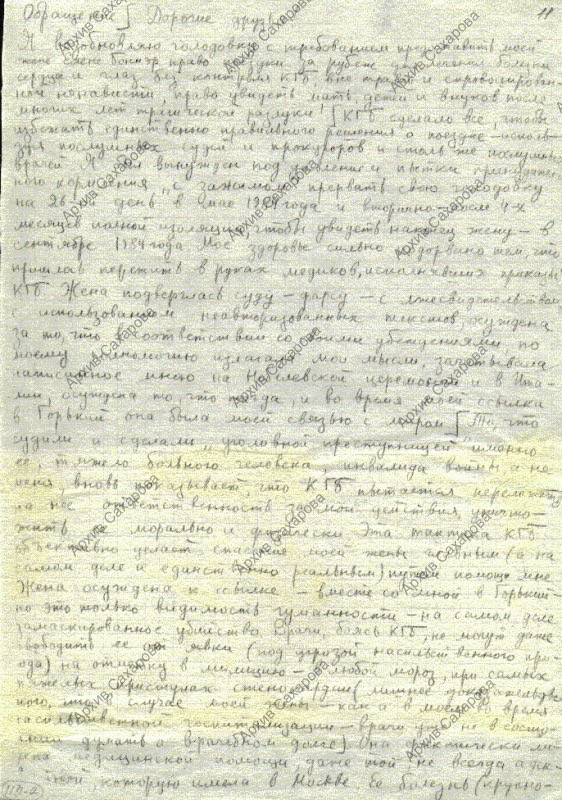 11
Обращение] Дорогие друзья
Я возобновляю голодовку с требованием предоставить моей
жене Елене Боннэр право поездки за рубеж для лечения болезни
сердца и глаз без контроля КГБ, вне травли и спровоцирован-
ной ненависти, право увидеть мать, детей и внуков после
многих лет трагической разлуки [КГБ сделало все, чтобы
избежать единственно правильного решения о поездке – исполь-
зуя послушных судей и прокуроров и столь же послушных
врачей. Я был вынужден под давлением и пытки принудитель-
ного кормления „с зажимом“ прервать свою голодовку
на 26-й день в мае 1984 года и вторично после 4-х
месяцев полной изоляции, чтобы увидеть наконец жену – в
сентябре 1984 года Мое здоровье сильно подорвано тем, что
пришлось пережить в руках медиков, исполнявших приказы
КГБ Жена подверглась суду – фарсу – с лжесвидетельством
с использованием неавторизованных текстов, осуждена
за то, что в соответствии со своими убеждениями, по
моему полномочию излагала мои мысли, зачитывала
написанное мною на Нобелевской церемонии и в Ита-
лии, осуждена за то, что тогда, и во время моей ссылки
в Горький она была моей связью с миром [То, что
судили и сделали „уголовной преступницей“ именно
ее, тяжело больного человека, инвалида войны, а не
меня, вновь показывает, что КГБ пытается переложить
на нее ответственность за мои действия, уничто-
жить морально и физически Эта тактика КГБ
объективно делает спасение моей жены главным (а на
самом деле и единственно реальным) путем помощи мне
Жена осуждена к ссылке – вместе со мной в Горький –
но это только видимость гуманности – на самом деле
замаскированное убийство Врачи, боясь КГБ, не могут даже
освободить ее от явки (под угрозой насильственного при-
вода) на отметку в милицию – в любой мороз, при самых
тяжелых приступах стенокардии (лишнее доказательство
того, что в случае моей жены – как и в моем во время
насильственной госпитализации – врачи уже не в состо-
янии думать о врачебном долге] Она фактически ли-
шена медицинской помощи даже той не всегда адек-
ватной, которую имела в Москве. Ее болезнь (крупно-
Архив Сахарова